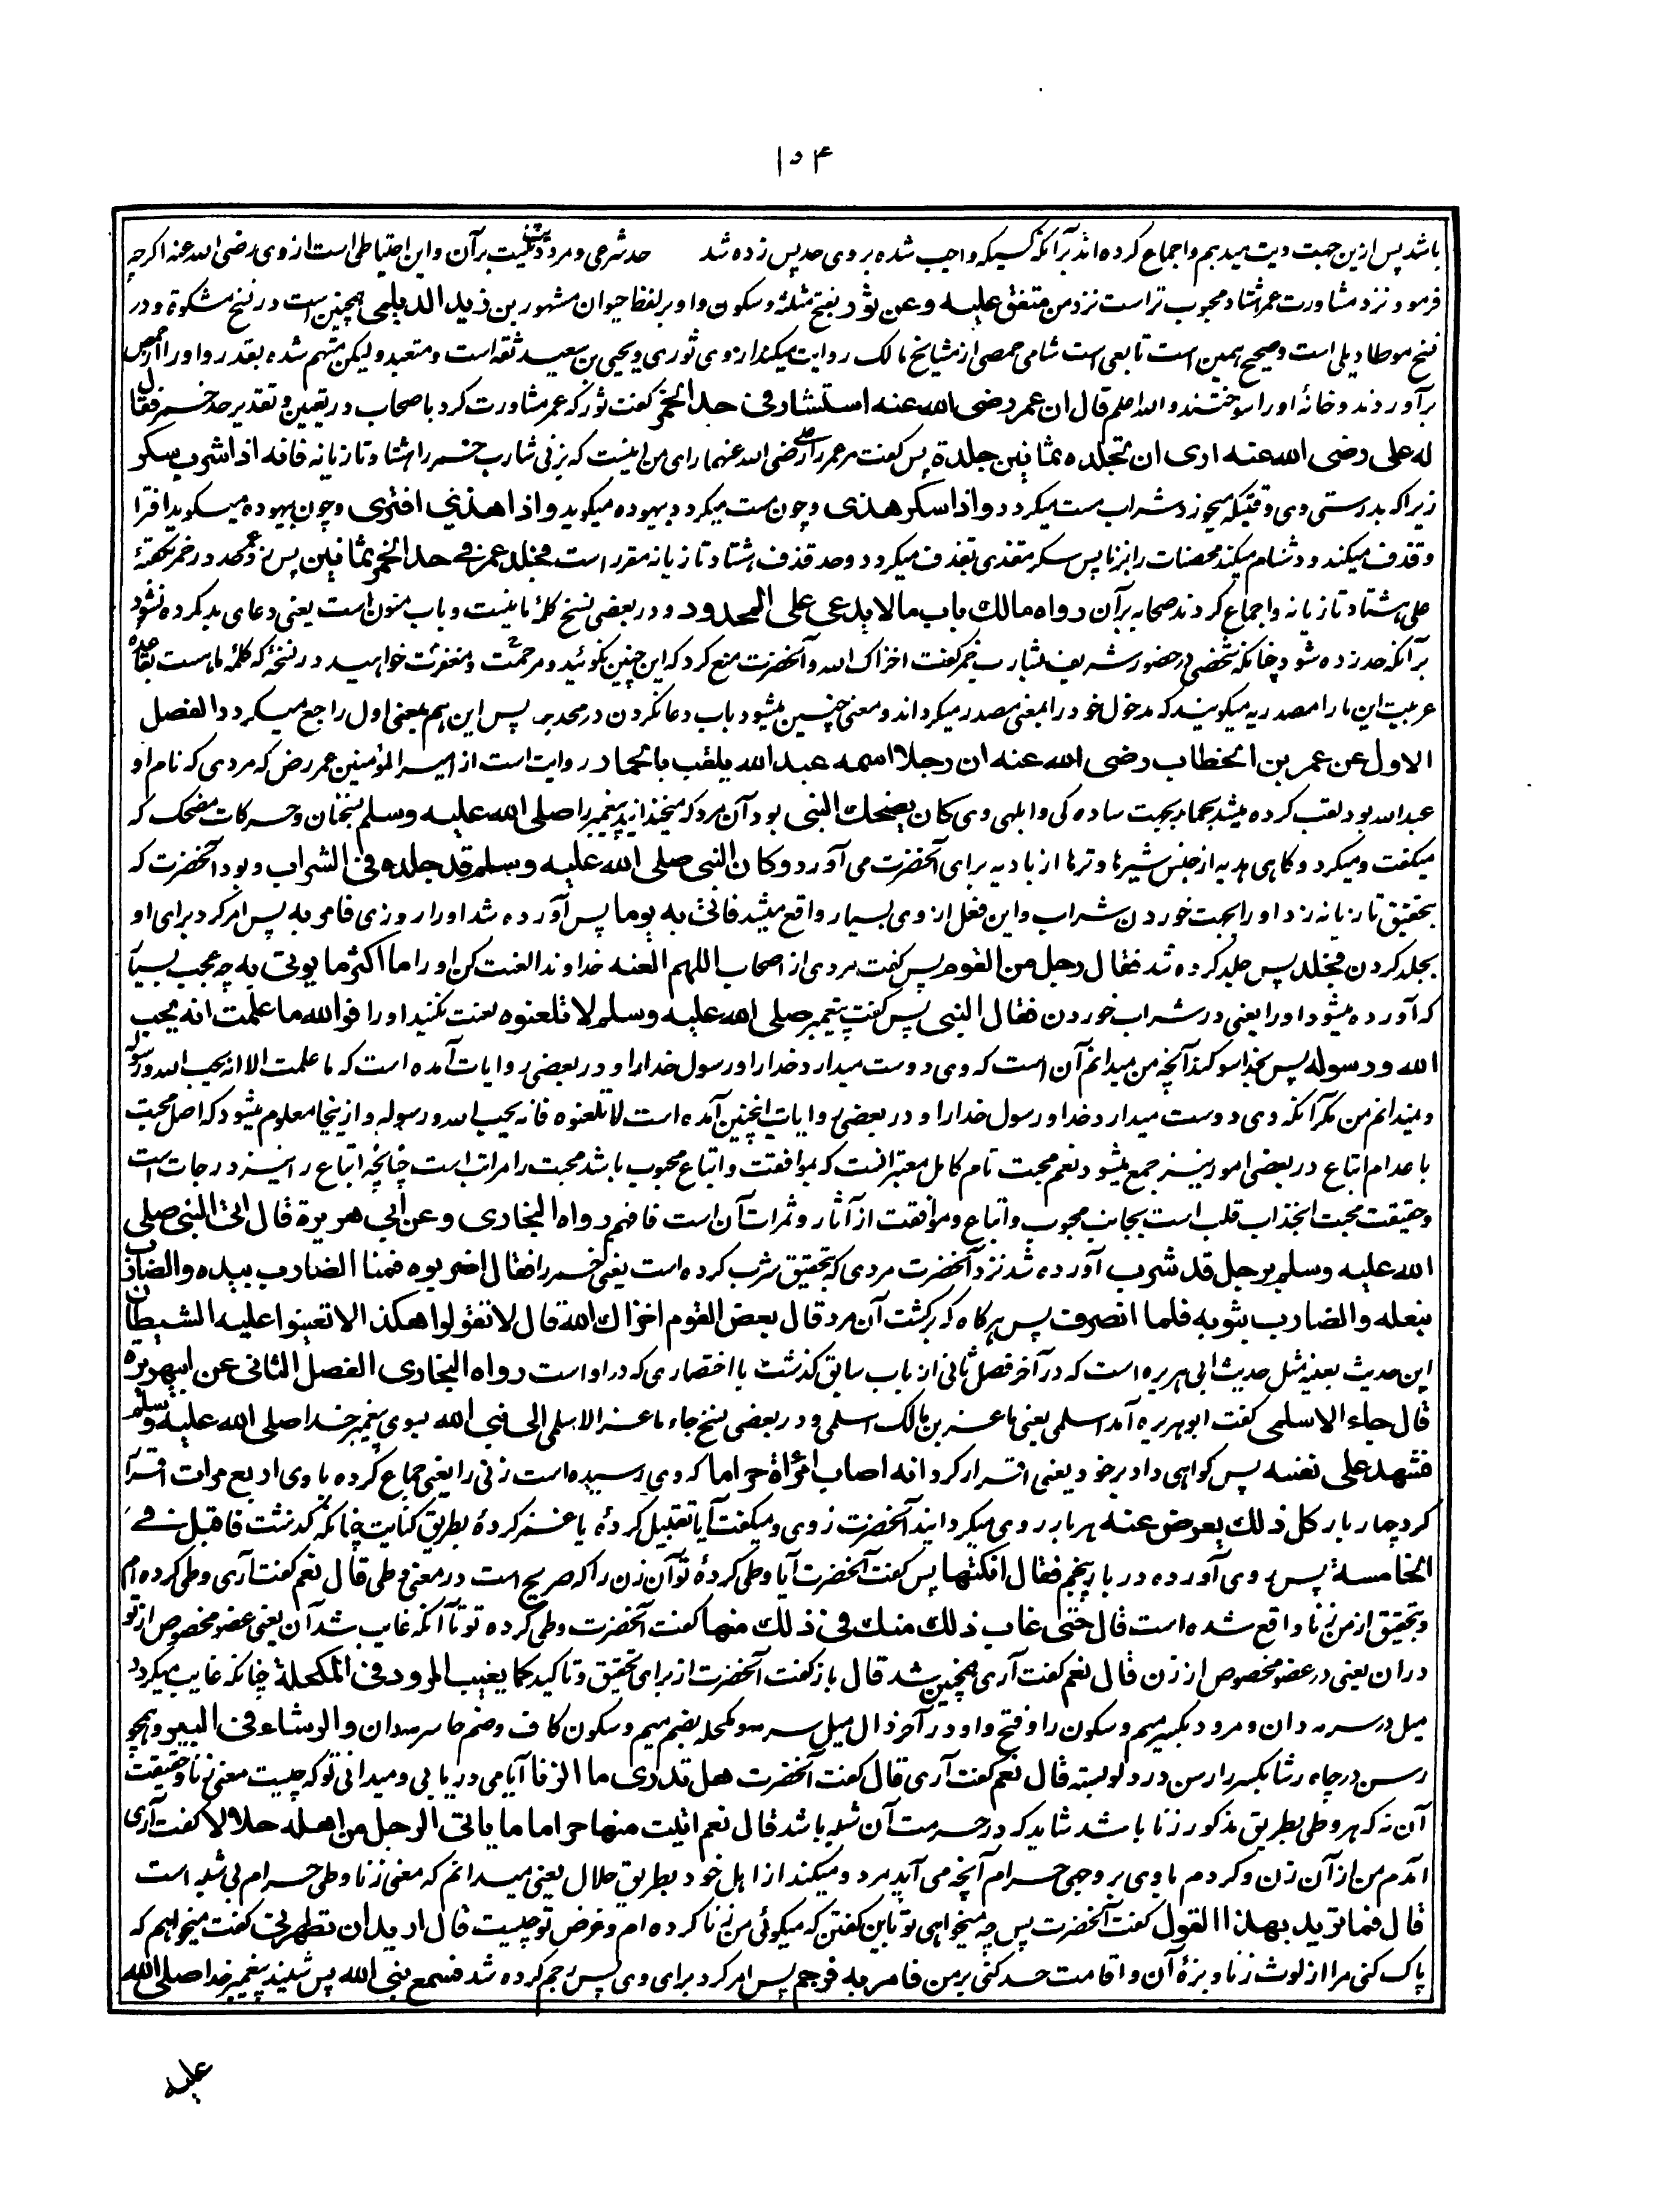 ۱۵۴
باشد پس ازین جهت دیت میدهم و اجماع کرده اند برآنکه کسیکه واجب شده بر وی حد پس زده شد حد شرعی و مرد دیت نیست بر آن و این احتیاطی است از وی رضی الله عنه اکرچه
فرمود نزد مشاورت عمر هشتاد محبوب تر است نزد من متفق علیه وعن ثور بفتح مثلثه و سکون واو بر لفظ حیوان مشهور بن زید الدیلمی همچنین است در نسخ مشکوة و در
نسخ موطا دیلی است و صحیح همین است تابعی است شامی حمصی از مشایخ مالک روایت میکند از وی ثوری و یحیی بن سعید ثقه است و متعبد ولیکن متهم شده بقدر و او را از حمص
برآوردند و خانهٔ او را سوختند والله اعلم قال ان عمر رضی الله عنه استشار فی حد الخمر کفت ثور که عمر مشاورت کرد باصحاب در تعیین و تقدیر حد خمر فقال
له علی رضی الله عنه اری ان تجلده ثمانین جلدة پس کفت مر عمر را علی رضی الله عنهما رای من اینست که بزنی شارب خمر را هشتاد تازیانه فانه اذا شرب سکر
زیرا که بدرستی وی وقتیکه میخورد شراب مست میکردد واذا سکر هذی و چون مست میکردد بیهوده میکوید واذا هذی افتری و چون بیهوده میکوید افترا
و قذف میکند و دشنام میکند محصنات را بزنا پس سکر مفضی بقذف میکردد و حد قذف هشتاد تازیانه مقرر است فجلد عمر فی حد الخمر ثمانین پس زد عمر حد در خمر بکفتهٔ
علی هشتاد تازیانه و اجماع کردند صحابه بر آن رواه مالك باب ما لا یدعی علی المحدود و در بعضی نسخ کلمهٔ ما نیست و باب منون است یعنی دعای بد کرده نشود
برآنکه حد زده شود چنانکه شخصی در حضور شریف شارب خمر کفت اخزاك الله و آنحضرت منع کرد که این چنین نکوئید و مرحمت و مغفرت خواهید در نسخهٔ که کلمهٔ ما هست بقاعدهٔ
عربیت این ما را مصدریه میکویند که مدخول خود را بمعنی مصدر میکرداند و معنی چنین میشود باب دعا نکردن در محدود پس این هم بمعنی اول راجع میکردد الفصل
الاول عن عمر بن الخطاب رضی الله عنه ان رجلا اسمه عبد الله یلقب بالحمار روایت است از امیر المؤمنین عمر رض که مردی که نام او
عبد الله بود لقب کرده میشد بحمار بجهت ساده کی و ابلهی وی کان یضحك النبی بود آن مرد که میخندانید پیغمبر را صلی الله علیه وسلم بسخنان و حرکات مضحک که
میکفت و میکرد و کاهی هدیه از جنس شیرها و ترها از بادیه برای آنحضرت می آورد وکان النبی صلی الله علیه وسلم قد جلده فی الشراب و بود آنحضرت که
بتحقیق تازیانه زد او را بجهت خوردن شراب و این فعل از وی بسیار واقع میشد فاتی به یوما پس آورده شد او را روزی فامر به پس امر کرد برای او
بجلد کردن فجلد پس جلد کرده شد فقال رجل من القوم پس کفت مردی از اصحاب اللهم العنه خداوندا لعنت کن او را ما اکثر ما یوتی به چه عجب بسیار
که آورده میشود او را یعنی در شراب خوردن فقال النبی پس کفت پیغمبر صلی الله علیه وسلم لا تلعنوه لعنت نکنید او را فوالله ما علمت انه یحب
الله ورسوله پس بخدا سوکند آنچه من میدانم آن است که وی دوست میدارد خدا را و رسول خدا را و در بعضی روایات آمده است که ما علمت الا انه یحب الله ورسوله
و نمیدانم من مکر آنکه وی دوست میدارد خدا و رسول خدا را و در بعضی روایات اینچنین آمده است لا تلعنوه فانه یحب الله ورسوله و ازینجا معلوم میشود که اصل محبت
با عدم اتباع در بعضی امور نیز جمع میشود نعم محبت تام کامل معتبر آنست که بموافقت و اتباع محبوب باشد محبت را مراتب است چنانچه اتباع را نیز درجات است
و حقیقت محبت انجذاب قلب است بجانب محبوب و اتباع و موافقت از آثار و ثمرات آن است فافهم رواه البخاری وعن ابی هریرة قال اتی النبی صلی
الله علیه وسلم برجل قد شرب آورده شد نزد آنحضرت مردی که بتحقیق شرب کرده است یعنی خمر را فقال اضربوه فمنا الضارب بیده والضارب
بنعله والضارب بثوبه فلما انصرف پس هرکاه که برکشت آن مرد قال بعض القوم اخزاك الله قال لا تقولوا هکذا لا تعینوا علیه الشیطان
این حدیث بعینه مثل حدیث ابی هریره است که در آخر فصل ثانی از باب سابق کذشت با اختصاری که در او است رواه البخاری الفصل الثانی عن ابی هریرة
قال جاء الاسلمی کفت ابو هریره آمد اسلمی یعنی ماعز بن مالک اسلمی و در بعضی نسخ جاء ماعز الاسلمی الی نبی الله بسوی پیغمبر خدا صلی الله علیه وسلم
فشهد علی نفسه پس کواهی داد بر خود یعنی اقرار کرد انه اصاب امرأة حراما که وی رسیده است زنی را یعنی جماع کرده با وی اربع مرات اقرار
کرد چهار بار کل ذلك یعرض عنه هر بار روی میکردانید آنحضرت از وی و میکفت آیا تقبیل کردهٔ یا غمز کردهٔ بطریق کنایت چنانکه کذشت فاقبل فی
الخامسة پس روی آورده در بار پنجم فقال انکتها پس کفت آنحضرت آیا وطی کردهٔ تو آن زن را که صریح است در معنی وطی قال نعم کفت آری وطی کرده ام
و بتحقیق از من زنا واقع شده است قال حتی غاب ذلك منك فی ذلك منها کفت آنحضرت وطی کرده تو تا آنکه غایب شد آن یعنی عضو مخصوص از تو
در ان یعنی در عضو مخصوص از زن قال نعم کفت آری همچنین شد قال باز کفت آنحضرت از برای تحقیق و تاکید کما یغیب المرود فی المکحلة چنانکه غایب میکردد
میل در سرمه دان و مرود بکسر میم و سکون را و فتح واو در آخر دال میل سرمه و مکحله بضم میم و سکون کاف و ضم حا سرمه دان والرشاء فی البیر و همچو
رسن در چاه رشا بکسر را رسن در دلو بسته قال نعم کفت آری قال کفت آنحضرت هل تدری ما الزنا آیا می دریابی و میدانی تو که چیست معنی زنا و حقیقت
آن نه که هر وطی بطریق مذکور زنا باشد شاید که در حرمت آن شبه باشد قال نعم اتیت منها حراما ما یاتی الرجل من اهله حلالا کفت آری
آمدم من از آن زن و کردم با وی بر وجهی حرام آنچه می آید مرد و میکند از اهل خود بطریق حلال یعنی میدانم که معنی زنا وطی حرام بی شبه است
قال فما ترید بهذا القول کفت آنحضرت پس چه میخواهی تو باین کفتن که میکوئی من زنا کرده ام و غرض تو چیست قال ارید ان تطهرنی کفت میخواهم که
پاک کنی مرا از لوث زنا و بزهٔ آن و اقامت حد کنی بر من فامر به فرجم پس امر کرد برای وی پس رجم کرده شد فسمع نبی الله پس شنید پیغمبر خدا صلی الله
علیه